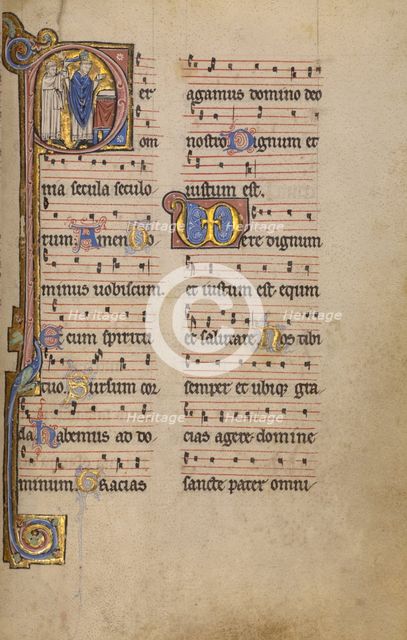 Per
om
nia secula seculo
rum Amen Do
minus vobiscum.
Et cum spiritu
tuo. Sursum cor
da habemus ad do
minum. Gracias
agamus domino deo
nostro Dignum et
iustum est.
Vere dignum
et iustum est equm
et salutare Nos tibi
semper et ubiq gra
cias agere domine
sancte pater omni
Heritage
Heritage
Heritage
Heritage
Heritage
Heritage